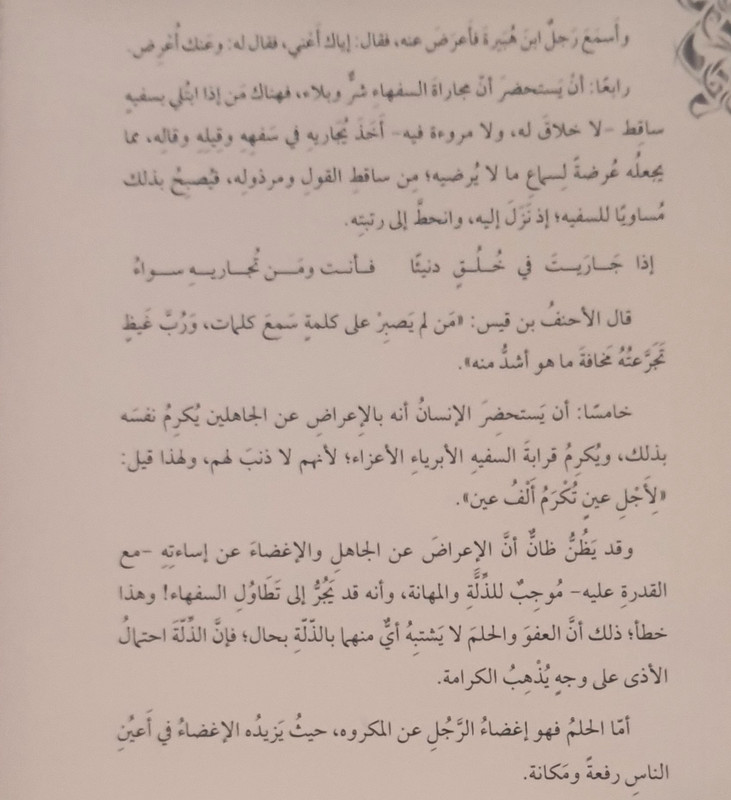 وأَسمَعَ رَجلٌ ابنَ هُبَيرةَ فأَعرَضَ عنه، فقال: إياك أَعْني، فقال له: وعَنك أُعْرِض.
رابعًا: أنْ يَستحضرَ أنّ مجاراةَ السفهاءِ شرٌّ وبلاء، فهناك مَن إذا ابتُلي بسفيهٍ
ساقِط -لا خلاقَ له، ولا مروءة فيه- أَخَذَ يُجَاريهِ في سَفهِهِ وقِيلِهِ وقالِه، مما
يجعلُه عُرضةً لِسماعِ ما لا يُرضيه؛ مِن ساقطِ القولِ ومرذولِه، فيُصبِحُ بذلك
مُساويًا للسفيه؛ إذ نَزَلَ إليه، وانحطَّ إلى رتبتِه.
إذا جَــارَيــتَ في خُــلُــقٍ دنيئًا فــأنــت ومَــن تُجــاريــهِ ســواءُ
قال الأحنفُ بن قيس: «مَن لم يَصبِرْ على كلمةٍ سَمعَ كلمات، وَرُبَّ غَيظٍ
تَجَرَّعتُهُ مَخافةَ ما هو أشدُّ منه».
خامسًا: أن يَستحضِرَ الإنسانُ أنه بالإعراضِ عن الجاهلين يُكرِمُ نفسَه
بذلك، ويُكرِمُ قرابةَ السفيهِ الأبرياءِ الأعزاء؛ لأنهم لا ذنبَ لهم، ولهذا قيل:
«لِأَجْلِ عينٍ تُكْرَمُ أَلْفُ عين».
وقد يَظُنُّ ظانٌّ أنَّ الإعراضَ عن الجاهلِ والإغضاءَ عن إساءتِهِ -مع
القدرةِ عليه- مُوجِبٌ للذِّلَّةِ والمهانة، وأنه قد يَجُرُّ إلى تَطَاوُلِ السفهاء! وهذا
خطأ؛ ذلك أنَّ العفوَ والحلمَ لا يَشتبِهُ أيٌّ منهما بالذّلّةِ بحال؛ فإنَّ الذّلّةَ احتمالُ
الأذى على وجهٍ يُذْهِبُ الكرامة.
أمّا الحلمُ فهو إغضاءُ الرَّجُلِ عن المكروه، حيثُ يَزيدُه الإغضاءُ في أَعيُنِ
الناسِ رفعةً ومَكانة.